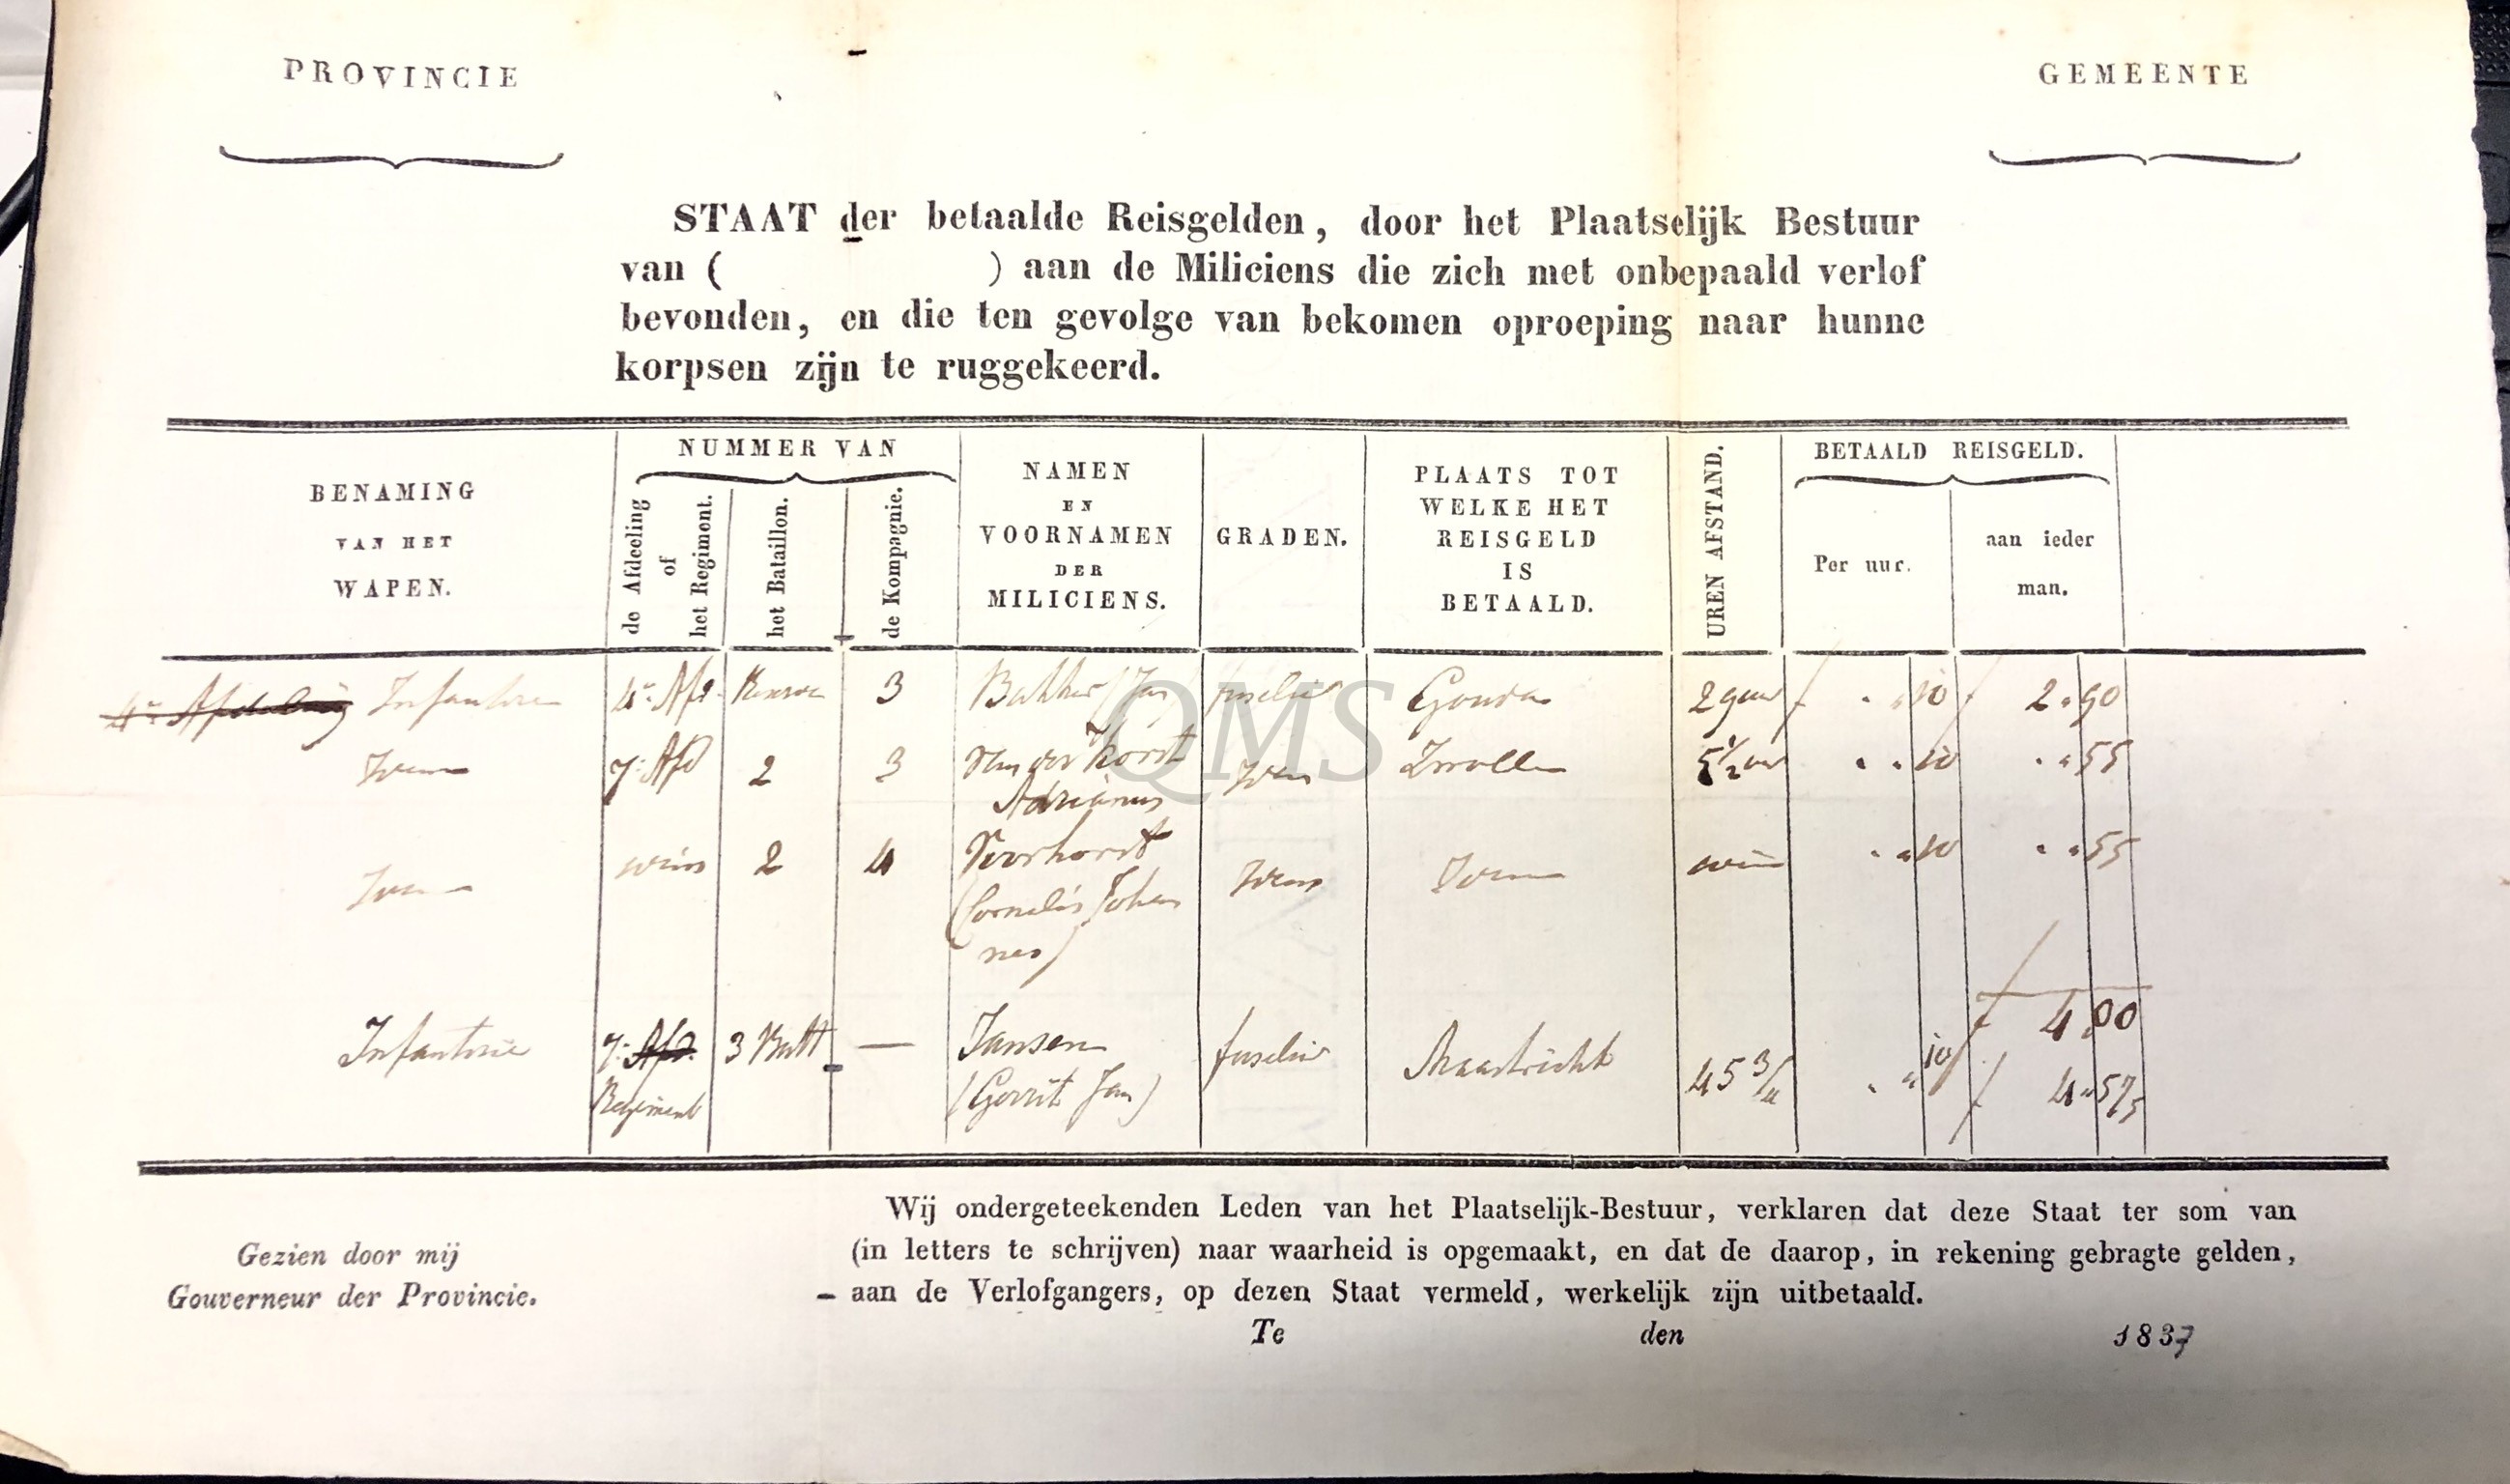 PROVINCIE
GEMEENTE
STAAT der betaalde Reisgelden, door het Plaatselijk Bestuur
van ( ) aan de Miliciens die zich met onbepaald verlof
bevonden, en die ten gevolge van bekomen oproeping naar hunne
korpsen zijn te ruggekeerd.
BENAMING
VAN HET
WAPEN.
NUMMER VAN
de Afdeeling
of
het Regiment.
het Bataillon.
de Kompagnie.
NAMEN
EN
VOORNAMEN
DER
MILICIENS.
GRADEN.
PLAATS TOT
WELKE HET
REISGELD
IS
BETAALD.
UREN AFSTAND.
BETAALD REISGELD.
Per uur.
aan ieder
man.
4e Afdeeling Infanterie 4e Afd. Reserve 3 Bakker (Jan) fuselier Gouda 29 uur f " " 10 f 2 " 90
Idem 7e Afd 2 3 van der Horst Idem Zwolle 5 1/2 uur " " 10 " " 55
Adrianus
Idem idem 2 4 Voorhorst Idem Idem idem " " 10 " " 55
(Cornelis Johan
nes)
f 4.00
Infanterie 7e Afd. 3 Batt — Jansen fuselier Maastricht 45 3/4 " " 10 f 4 " 57 5
Regiment (Gerrit Jan)
Wij ondergeteekenden Leden van het Plaatselijk-Bestuur, verklaren dat deze Staat ter som van
(in letters te schrijven) naar waarheid is opgemaakt, en dat de daarop, in rekening gebragte gelden,
aan de Verlofgangers, op dezen Staat vermeld, werkelijk zijn uitbetaald.
Gezien door mij
Gouverneur der Provincie.
Te den 1837
QMS